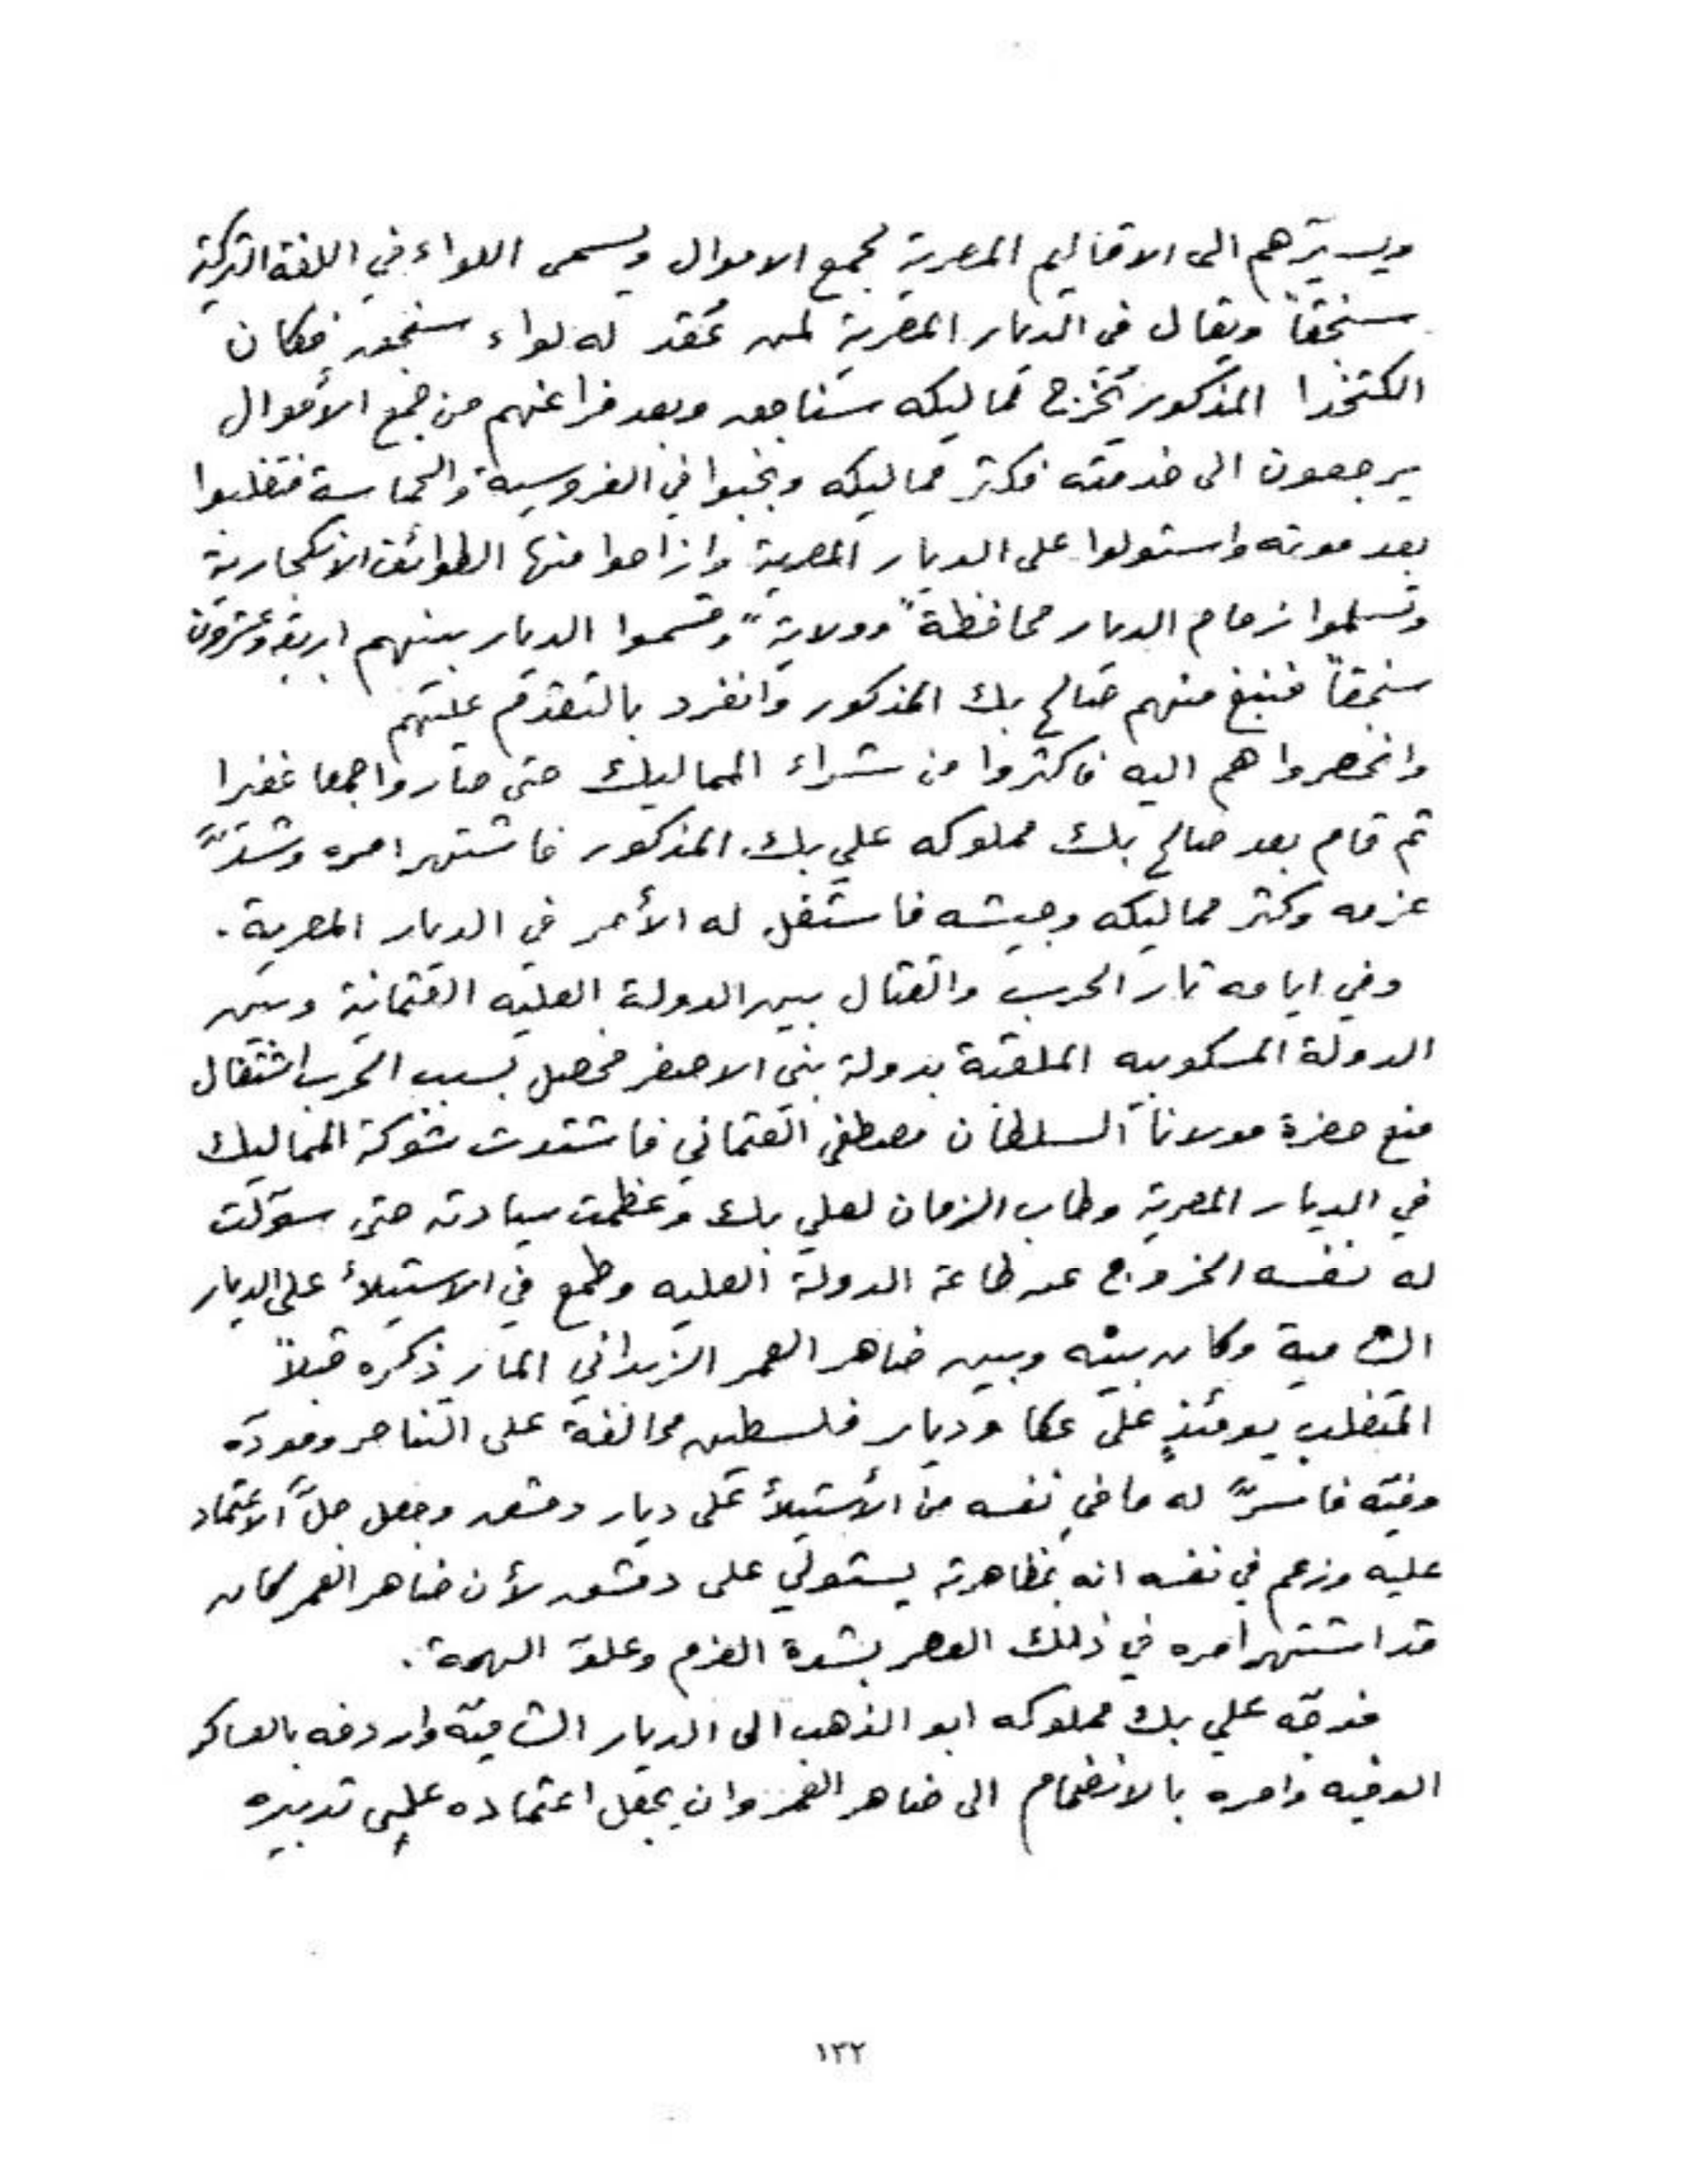 ويسيّرهم الى الاقاليم المصرية لجمع الاموال ويسمى اللواء في اللغة التركية
سنجقاً ويقال في الديار المصرية لمن عُقد له لواء سنجق فكان
الكتخدا المذكور يُخرج مماليكه سناجق وبعد فراغهم من جمع الأموال
يرجعون الى خدمته فكثر مماليكه ونجبوا في الفروسية والحماسة فتغلبوا
بعد موته واستولوا على الديار المصرية وازاحوا منها الطوائف الانكجارية
وتسلموا زمام الديار محافظةً وولايةً وقسموا الديار بينهم اربعة وعشرون
سنجقاً فنبغ منهم صالح بك المذكور وانفرد بالتقدم عليهم
وانحصروا هم اليه فاكثروا من شراء المماليك حتى صاروا جمعا غفيرا
ثم قام بعد صالح بك مملوكه علي بك المذكور فاشتهر امره وشدَّ
عزمه وكثر مماليكه وجيشه فاستفحل له الأمر في الديار المصرية.
وفي ايامه ثار الحرب والقتال بين الدولة العليه العثمانية وبين
الدولة المسكوبيه الملقبة بدولة بني الاصفر فحصل بسبب الحرب اشتغال
منع حضرة مولانا السلطان مصطفى العثماني فاشتدت شوكة المماليك
في الديار المصرية وطاب الزمان لعلي بك وعظمت سيادته حتى سوّلت
له نفسه الخروج عن طاعة الدولة العليه وطمع في الاستيلأ على الديار
الشامية وكان بينه وبين ضاهر العمر الزيداني المار ذكره قبلاً
المتغلب يومئذٍ على عكا وديار فلسطين محالفة على التناصر ومودّة
وفيّه فاسرَّ له ما في نفسه من الأستيلأ على ديار دمشق وجعل جلَّ الاعتماد
عليه وزعم في نفسه انه بمظاهرته يستولي على دمشق لأن ضاهر العمر كان
قد اشتهر امره في ذلك العصر بشدة العزم وعلوّ الهمة.
فوجّه علي بك مملوكه ابو الذهب الى الديار الشاميّة واردفه بالعساكر
الوفيه وامره بالانضمام الى ضاهر العمر وان يجعل اعتماده على تدبيره
١٣٢